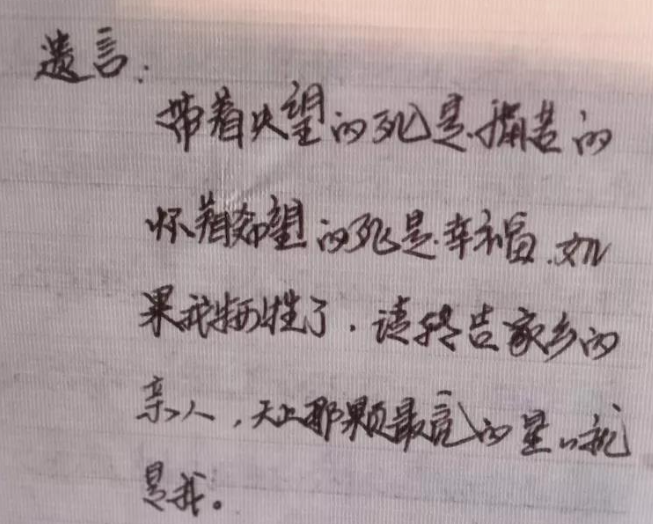 遗言:
带着失望的死是痛苦的
怀着希望的死是幸福.如
果我牺牲了.请转告家乡的
亲人,天上那颗最亮的星心就
是我。